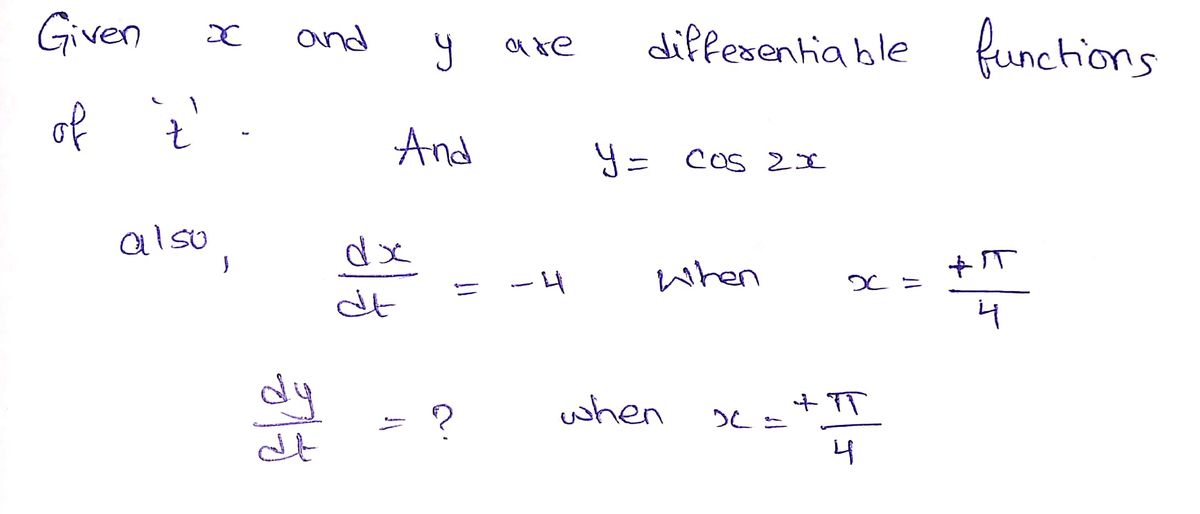 Given x and y are differentiable functions
of 't'. And y = cos 2x
also, dx/dt = -4 when x = +π/4
dy/dt = ? when x = +π/4